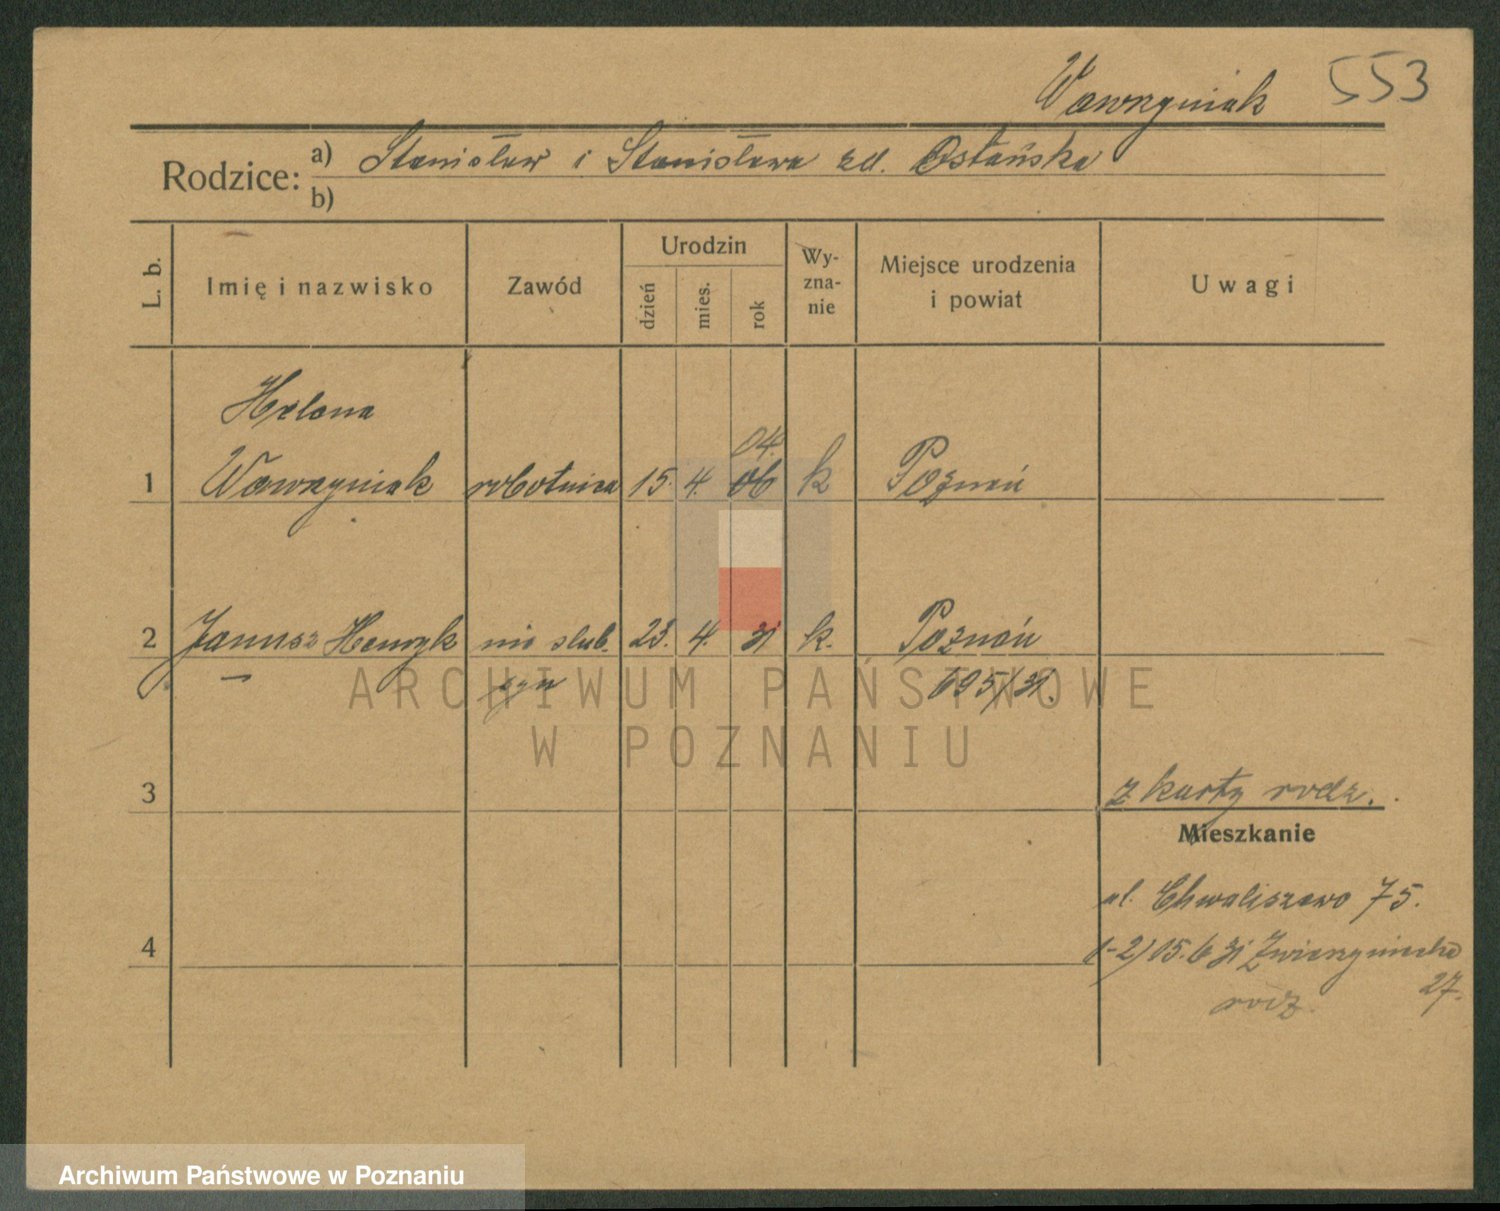 Wawrzyniak 553
Rodzice: a) Stanisław i Stanisława zd. Ostańska
b)
L. b. Imię i nazwisko Zawód Urodzin dzień mies. rok Wy-zna-nie Miejsce urodzenia i powiat Uwagi
Helena
04.
1 Wawrzyniak robotnica 15. 4. 06 k Poznań
2 Janusz Henryk nie ślub. 23. 4. 31 k. Poznań
syn 695/31.
ARCHIWUM PAŃSTWOWE
W POZNANIU
3 z karty rodz.
Mieszkanie
ul. Chwaliszewo 75.
4 1-2) 15.6 31 Zwierzyniecka
27.
rodz.
Archiwum Państwowe w Poznaniu